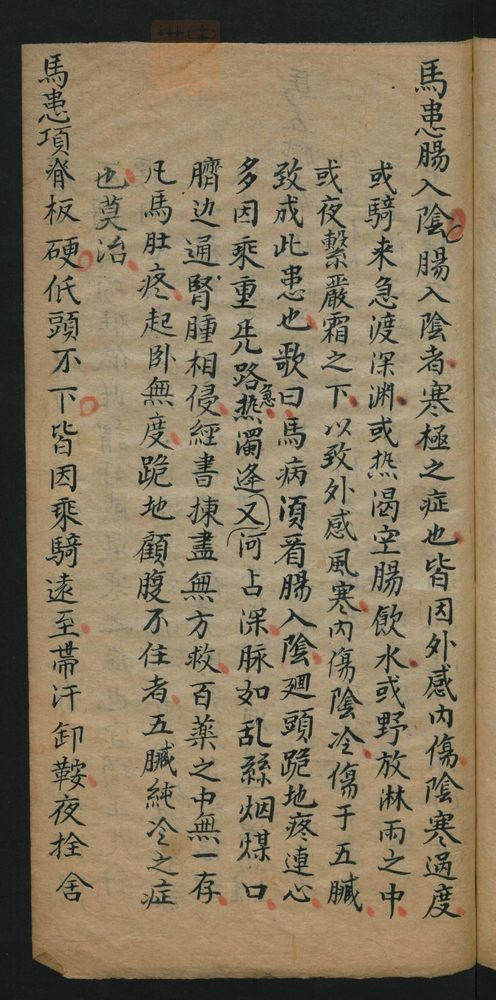 馬患腸入陰腸入陰者寒極之症也皆因外感内傷陰寒過度
或騎来急渡深渊或热渴空腸飲水或野放淋雨之中
或夜繫嚴霜之下以致外感風寒内傷陰冷傷于五臟
致成此患也歌曰馬病湏看腸入陰廻頭跪地疼連心
多因乘重兠路热急濁逢又河占深脉如乱絲烟煤口
臍边通腎腫相侵經書揀盡無方救百薬之中無一存
凡馬肚疼起卧無度跪地顧腹不住者五臟純冷之症
也莫治
馬患項脊板硬低頭不下皆因乘騎遠至帶汗卸鞍夜拴舍